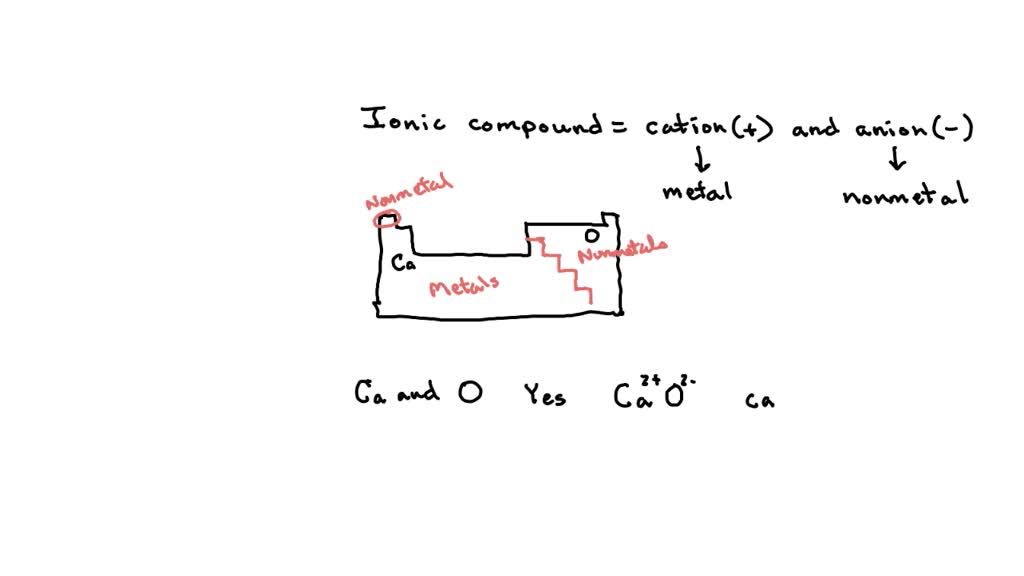 Ionic compound = cation (+) and anion (-)
↓ ↓
metal nonmetal
Nonmetal
O
Nonmetals
Ca
Metals
Ca and O Yes Ca²⁺O²⁻ ca